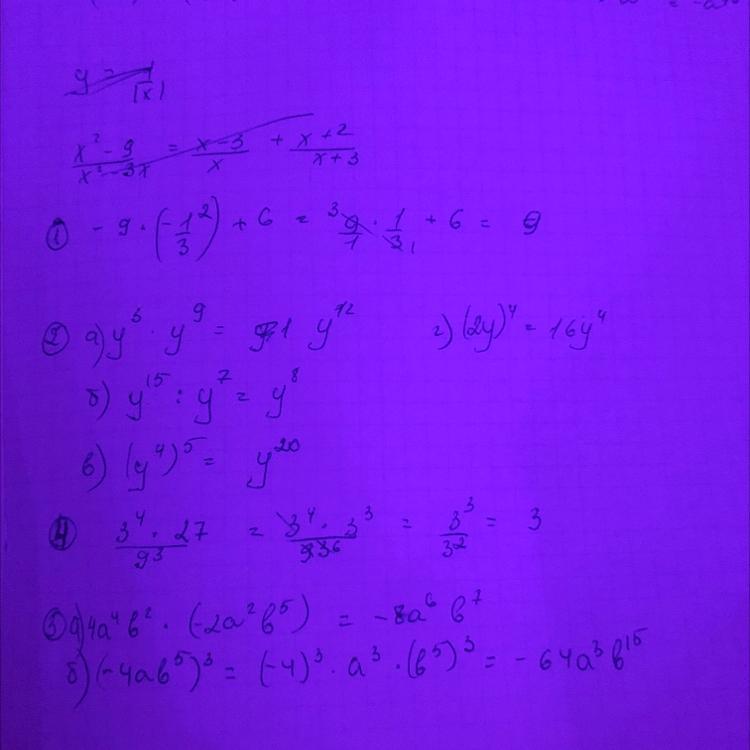 y = 1/|x|
(x² - 9)/(x² - 3x) = (x - 3)/x + (x + 2)/(x + 3)
① - 9 · (-1/3²) + 6 = 9/1 · 1/3 + 6 = 9
② а) y³ · y⁹ = y¹² г) (2y)⁴ = 16y⁴
б) y¹⁵ : y⁷ = y⁸
в) (y⁴)⁵ = y²⁰
4 (3⁴ · 27)/9³ = (3⁴ · 3³)/3⁶ = 3³/3² = 3
⑤ а) 4a⁴b² · (-2a²b⁵) = -8a⁶b⁷
б) (-4ab⁵)³ = (-4)³ · a³ · (b⁵)³ = - 64a³b¹⁵